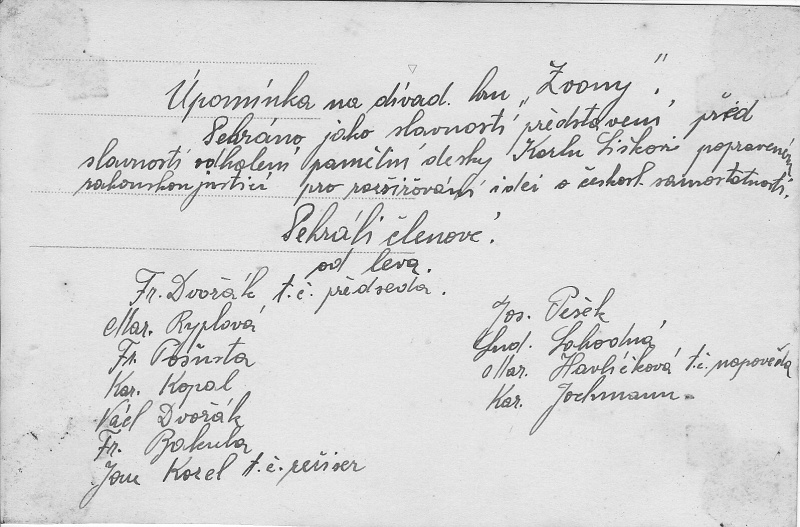 Upomínka na divad. hru „Zvony".
Sehráno jako slavností představení před
slavností odhalení pamětní desky Karlu Liškovi popraveném
rakouskou justicí pro rozšiřování ideí o českosl. samostatnosti.
Sehráli členové:
od leva.
Fr. Dvořák, t.č. předseda.
Mar. Ryplová
Fr. Pošusta
Kar. Kopal
Václ Dvořák
Fr. Bakula
Jan Korel t.č. režiser
Jos. Pešek
Lud. Lohodná
Mar. Havlíčková t.č. napověda
Kar. Jochmann